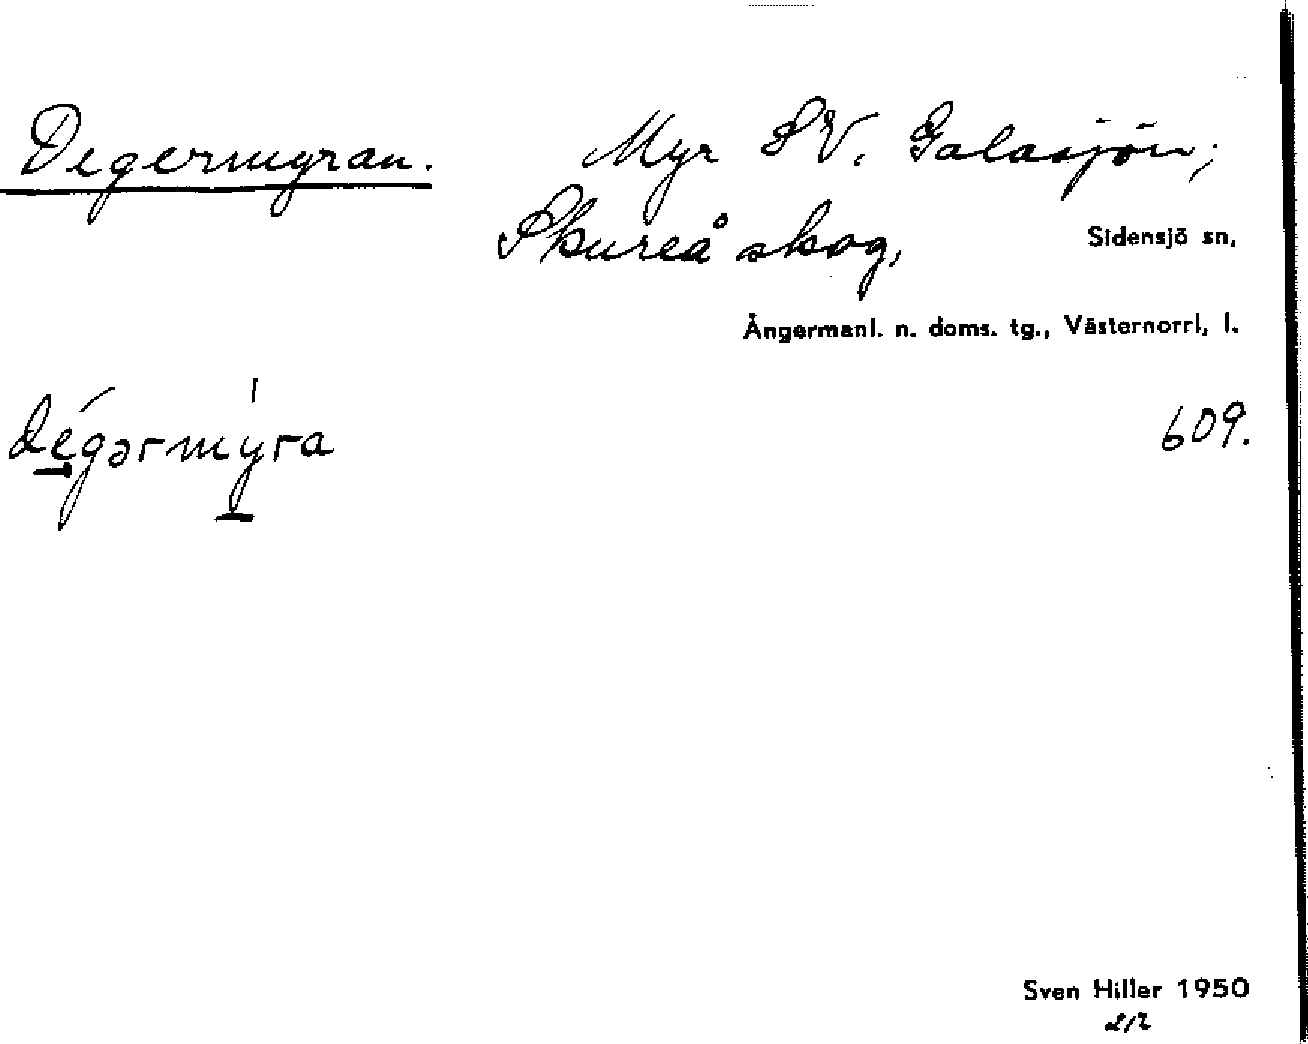 Degermyran.
Myr SV. Galasjön;
Skureå skog,
Sidensjö sn,
Ångermanl. n. doms. tg., Västernorrl. l.
dégərmýra
609.
Sven Hiller 1950